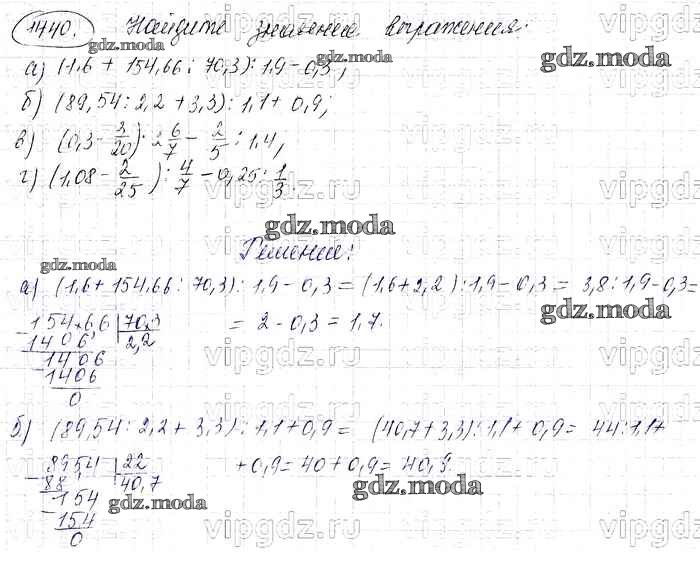 1440. Найдите значение выражения:
а) (1,6 + 154,66 : 70,3) : 1,9 - 0,3;
б) (89,54 : 2,2 + 3,3) : 1,1 + 0,9;
в) (0,3 - 3/20) · 2 6/7 - 2/5 : 1,4;
г) (1,08 - 2/25) : 4/7 - 0,25 : 1/3.
Решение:
а) (1,6 + 154,66 : 70,3) : 1,9 - 0,3 = (1,6 + 2,2) : 1,9 - 0,3 = 3,8 : 1,9 - 0,3 =
= 2 - 0,3 = 1,7.
154,66 | 70,3
1406 | 2,2
1406
1406
0
б) (89,54 : 2,2 + 3,3) : 1,1 + 0,9 = (40,7 + 3,3) : 1,1 + 0,9 = 44 : 1,1 +
+ 0,9 = 40 + 0,9 = 40,9.
8954 | 22
88 | 40,7
154
154
0
gdz.moda
gdz.moda
gdz.moda
gdz.moda
gdz.moda
gdz.moda
gdz.moda
vipgdz.ru
vipgdz.ru
vipgdz.ru
vipgdz.ru
vipgdz.ru
vipgdz.ru
vipgdz.ru
vipgdz.ru